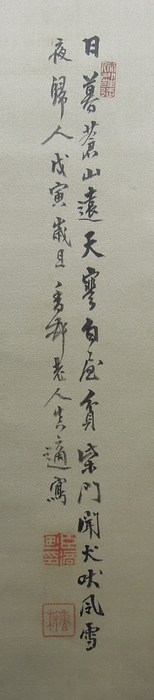 日暮蒼山遠天寒白屋貧柴門聞犬吠風雪
夜歸人戊寅歲旦香邨老人真適寫